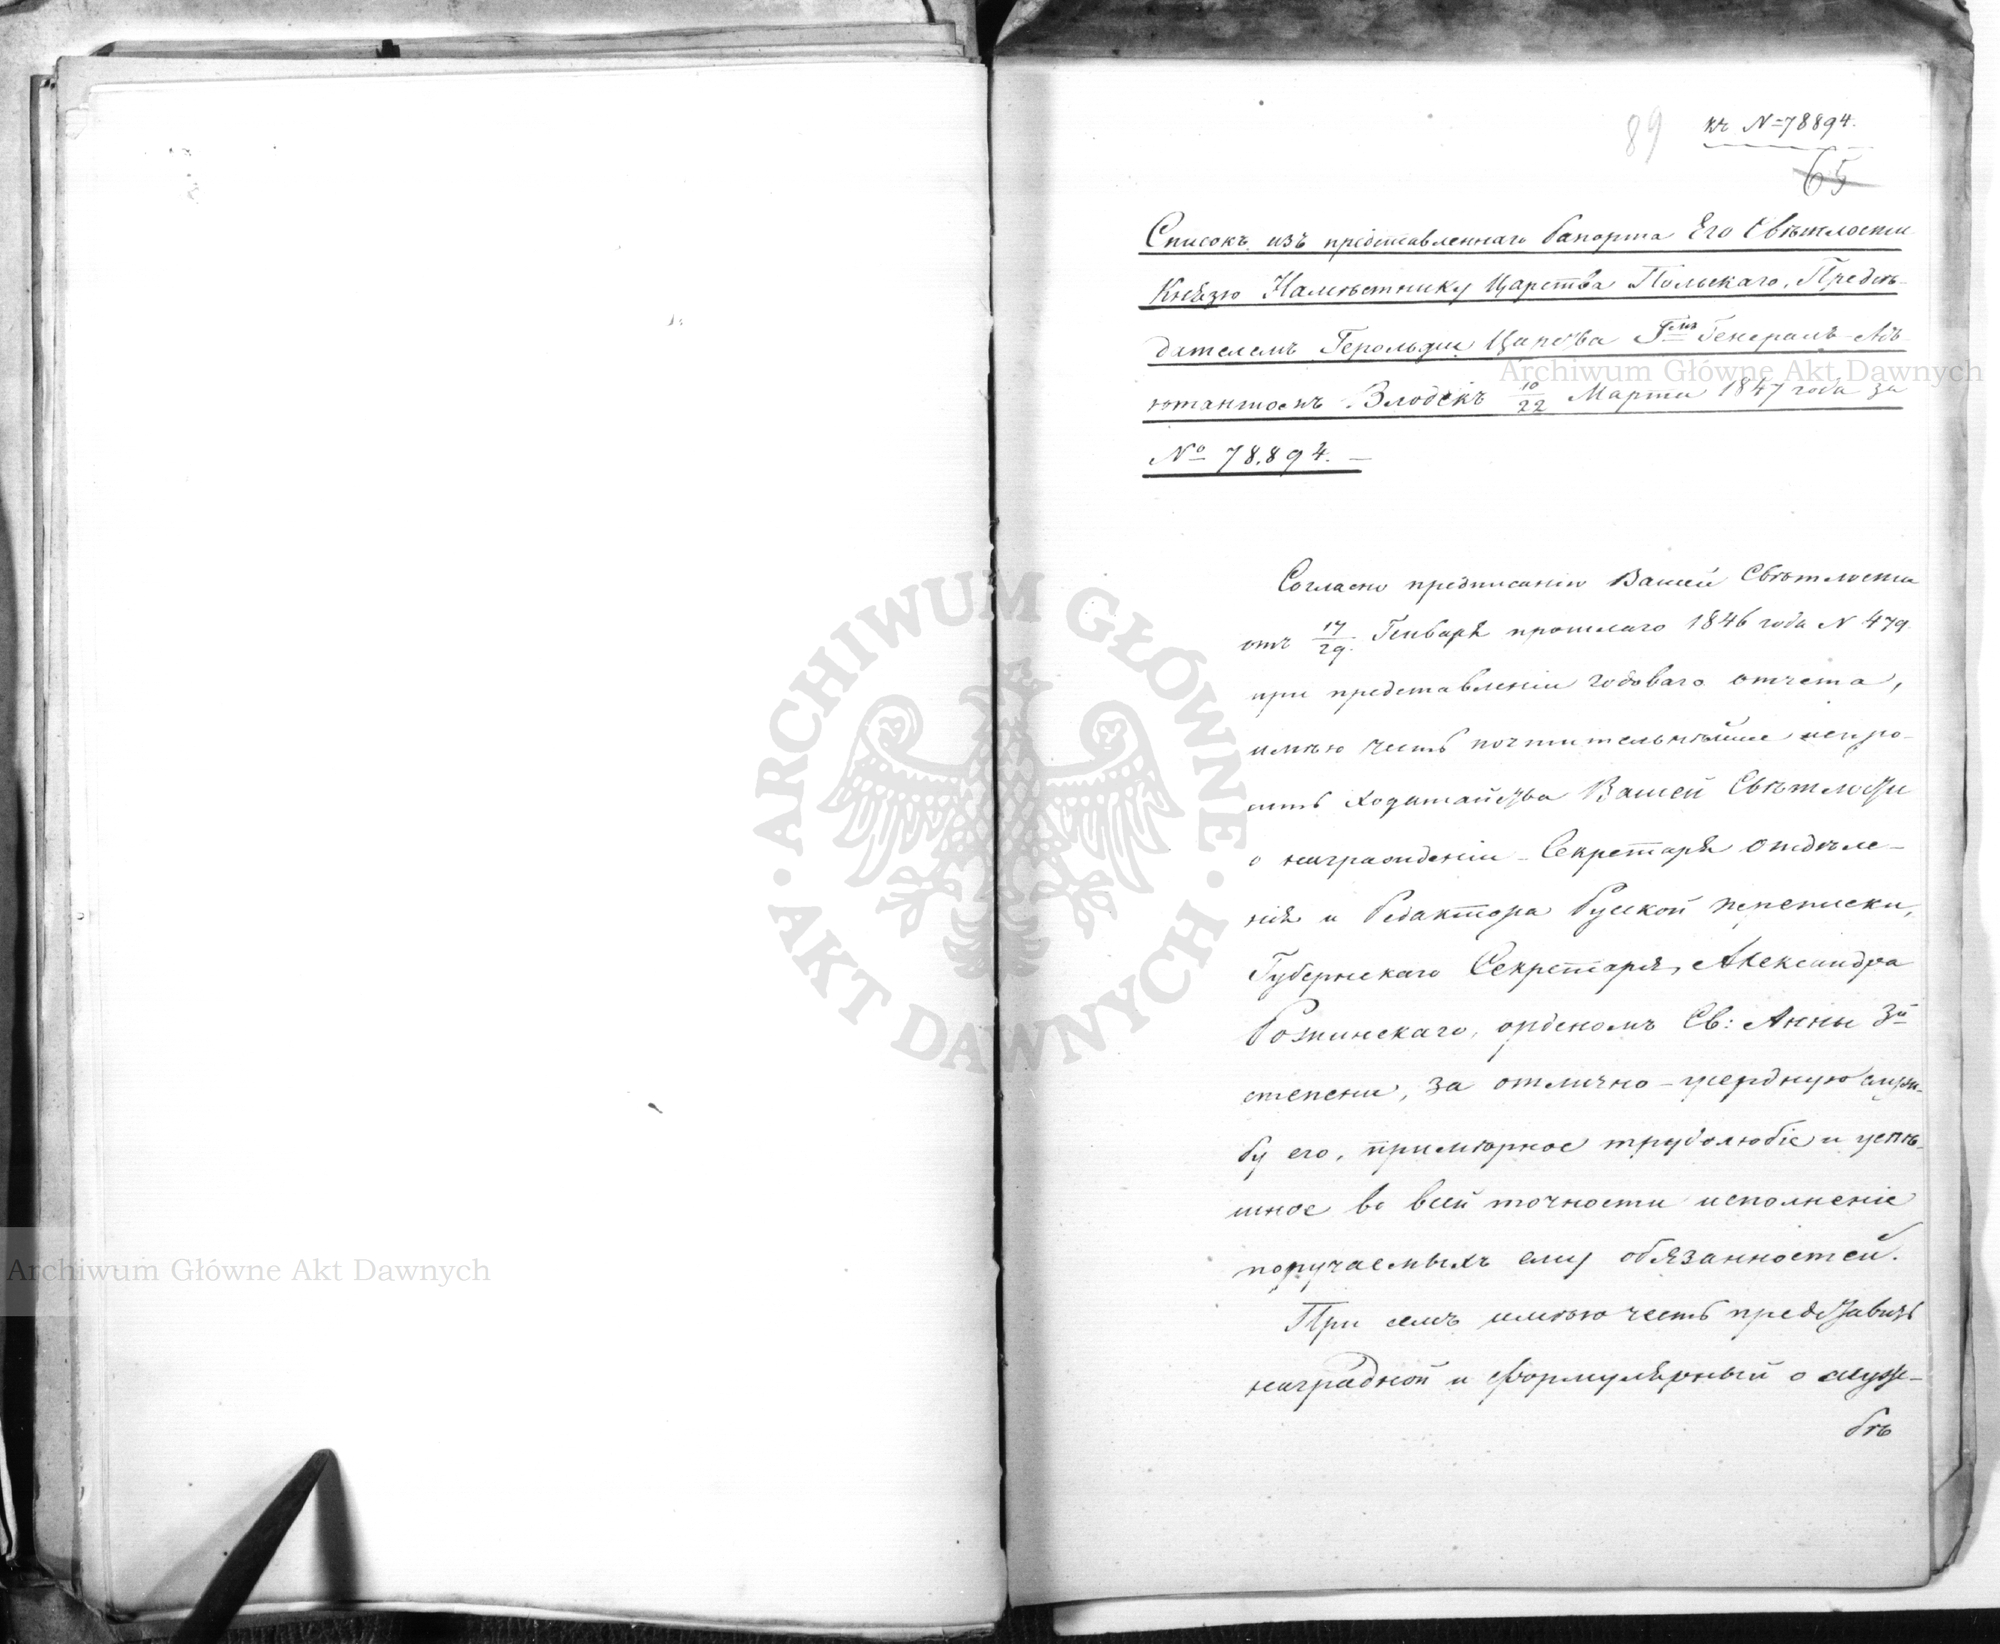 89 къ №78894.
65
Списокъ изъ представленнаго рапорта Его Свѣтлости
Князю Намѣстнику Царства Польскаго, Предсѣ-
дателемъ Герольдіи Царства Гмъ Генералъ-Адъ-
ютантомъ Влодекъ 10/22 Марта 1847 года за
№ 78.894. —
Согласно предписанію Вашей Свѣтлости
отъ 17/29. Генваря прошлаго 1846 года N 479
при представленіи годоваго отчета,
имѣю честь почтительнѣйше испро-
сить ходатайства Вашей Свѣтлости
о награжденіи Секретаря отдѣле-
нія и Редактора Руской переписки,
Губернскаго Секретаря, Александра
орденомъ Св: Анны 3й
степени, за отлично-усердную служ-
бу его, примѣрное трудолюбіе и успѣ-
шное во всей точности исполненіе
поручаемыхъ ему обязанностей.
При семъ имѣю честь представить
наградной и формулярный о служ-
бѣ
Archiwum Główne Akt Dawnych
Archiwum Główne Akt Dawnych
ARCHIWUM GŁÓWNE AKT DAWNYCH